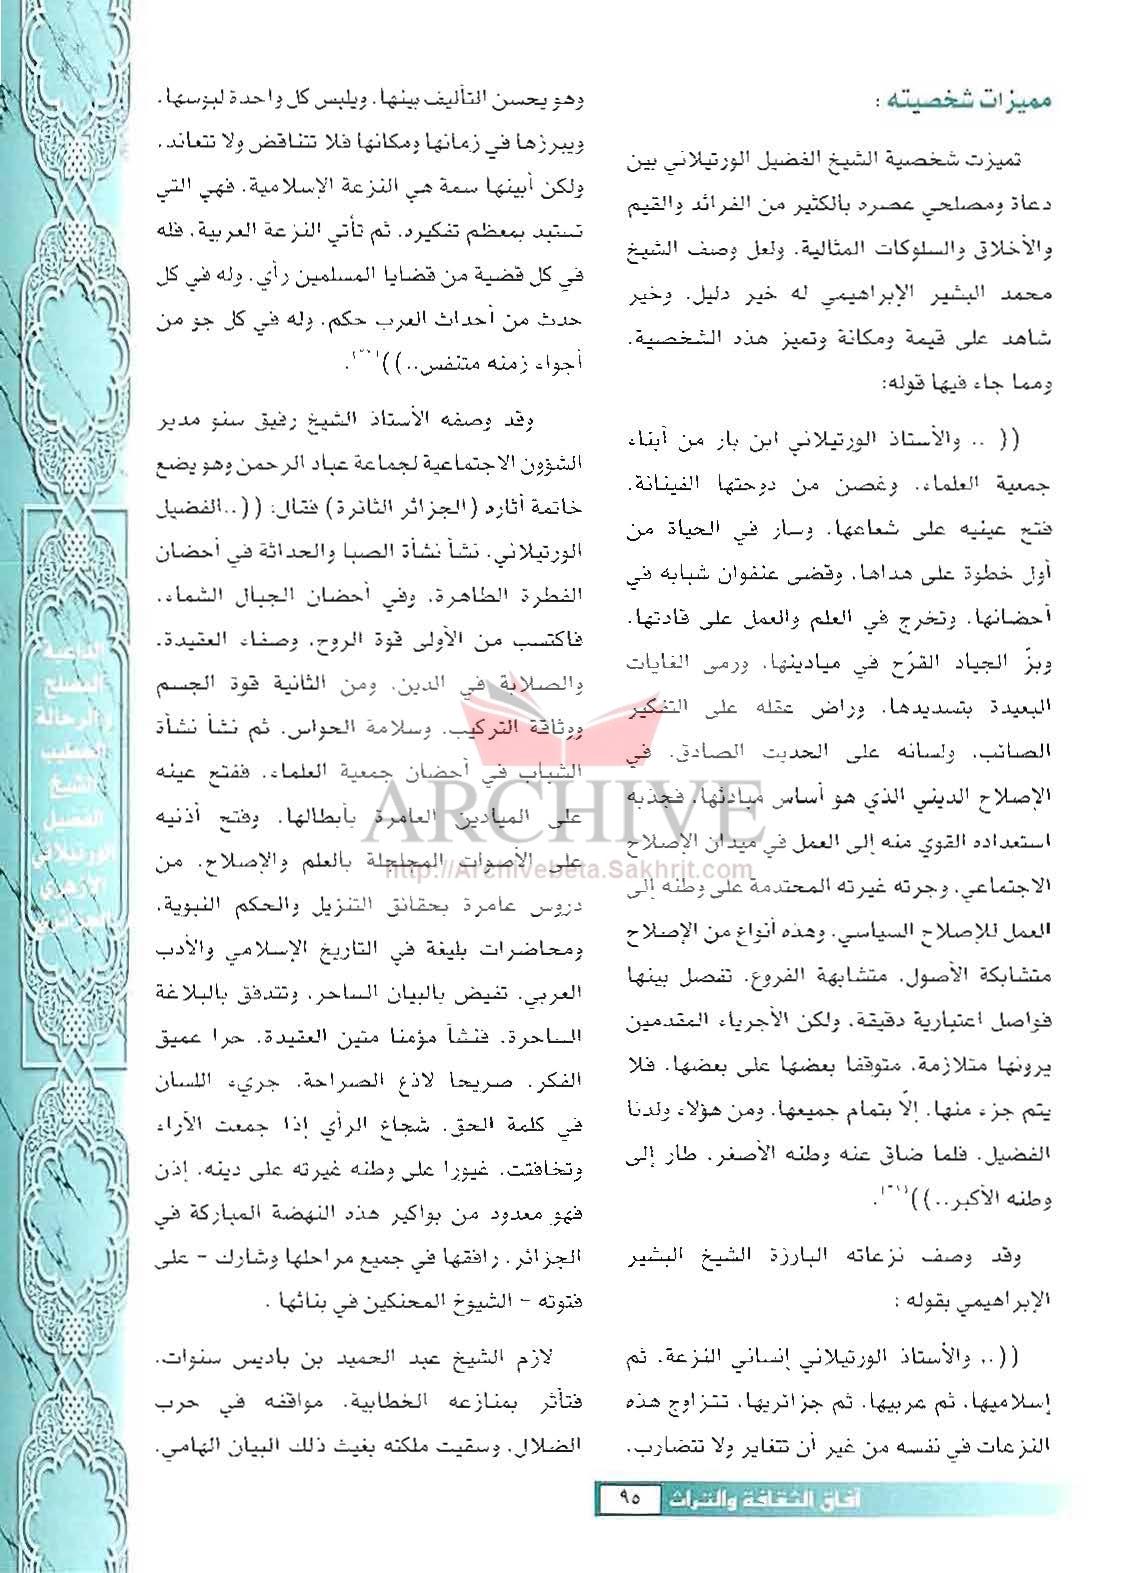 مميزات شخصيته :
تميزت شخصية الشيخ الفضيل الورتيلاني بين
دعاة ومصلحي عصره بالكثير من الفرائد والقيم
والأخلاق والسلوكات المثالية، ولعل وصف الشيخ
محمد البشير الإبراهيمي له خير دليل، وخير
شاهد على قيمة ومكانة وتميز هذه الشخصية،
ومما جاء فيها قوله:
(( .. والأستاذ الورتيلاني ابن بار من أبناء
جمعية العلماء، وغصن من دوحتها الفينانة،
فتح عينيه على شعاعها، وسار في الحياة من
أول خطوة على هداها، وقضى عنفوان شبابه في
أحضانها، وتخرج في العلم والعمل على قادتها،
وبزّ الجياد القرّح في ميادينها، ورمى الغايات
البعيدة بتسديدها، وراض عقله على التفكير
الصائب، ولسانه على الحديث الصادق، في
الإصلاح الديني الذي هو أساس مبادئها، فجذبه
استعداده القوي منه إلى العمل في ميدان الإصلاح
الاجتماعي، وجرته غيرته المحتدمة على وطنه إلى
العمل للإصلاح السياسي، وهذه أنواع من الإصلاح
متشابكة الأصول، متشابهة الفروع، تفصل بينها
فواصل اعتبارية دقيقة، ولكن الأجرياء المقدمين
يرونها متلازمة، متوقفا بعضها على بعضها، فلا
يتم جزء منها، إلاّ بتمام جميعها، ومن هؤلاء ولدنا
الفضيل، فلما ضاق عنه وطنه الأصغر، طار إلى
وطنه الأكبر..)).
وقد وصف نزعاته البارزة الشيخ البشير
الإبراهيمي بقوله :
((.. والأستاذ الورتيلاني إنساني النزعة، ثم
إسلاميها، ثم عربيها، ثم جزائريها، تتزاوج هذه
النزعات في نفسه من غير أن تتغاير ولا تتضارب،
وهو يحسن التأليف بينها، ويلبس كل واحدة لبوسها،
ويبرزها في زمانها ومكانها فلا تتناقض ولا تتعاند،
ولكن أبينها سمة هي النزعة الإسلامية، فهي التي
تستبد بمعظم تفكيره، ثم تأتي النزعة العربية، فله
في كل قضية من قضايا المسلمين رأي، وله في كل
حدث من أحداث العرب حكم، وله في كل جو من
أجواء زمنه متنفس..)).
وقد وصفه الأستاذ الشيخ رفيق سنو مدير
الشؤون الاجتماعية لجماعة عباد الرحمن وهو يضع
خاتمة آثاره (الجزائر الثائرة) فقال: ((..الفضيل
الورتيلاني، نشأ نشأة الصبا والحداثة في أحضان
الفطرة الطاهرة، وفي أحضان الجبال الشماء،
فاكتسب من الأولى قوة الروح، وصفاء العقيدة،
والصلابة في الدين، ومن الثانية قوة الجسم
ووثاقة التركيب، وسلامة الحواس، ثم نشأ نشأة
الشباب في أحضان جمعية العلماء، ففتح عينه
على الميادين العامرة بأبطالها، وفتح أذنيه
على الأصوات المجلجلة بالعلم والإصلاح، من
دروس عامرة بحقائق التنزيل والحكم النبوية،
ومحاضرات بليغة في التاريخ الإسلامي والأدب
العربي، تفيض بالبيان الساحر، وتتدفق بالبلاغة
الساحرة، فنشأ مؤمنا متين العقيدة، حرا عميق
الفكر، صريحا لاذع الصراحة، جريء اللسان
في كلمة الحق، شجاع الرأي إذا جمعت الآراء
وتخافتت، غيورا على وطنه غيرته على دينه، إذن
فهو معدود من بواكير هذه النهضة المباركة في
الجزائر، رافقها في جميع مراحلها وشارك - على
فتوته - الشيوخ المحنكين في بنائها .
لازم الشيخ عبد الحميد بن باديس سنوات،
فتأثر بمنازعه الخطابية، مواقفه في حرب
الضلال، وسقيت ملكته بغيث ذلك البيان الهامي،
الداعية
المصلح
والرحالة
الخطيب
الشيخ
الفضيل
الورتيلاني
الأزهري
الجزائري
ARCHIVE
http://Archivebeta.Sakhrit.com
آفاق الثقافة والتراث ٩٥